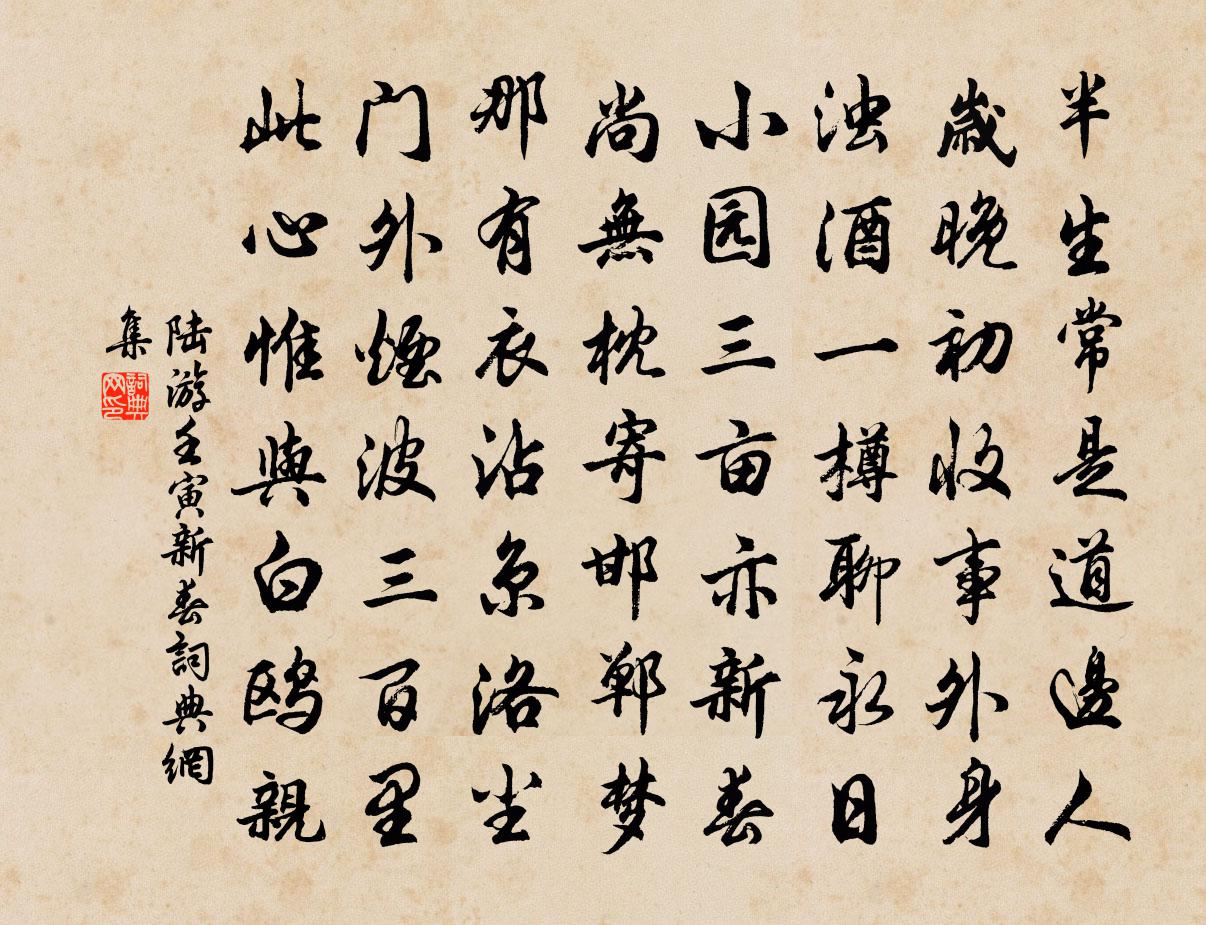 半生常是道邊人
嵗晚初收事外身
浊酒一樽聊永日
小园三亩亦新春
尚無枕寄邯郸梦
那有衣沾京洛尘
门外煙波三百里
此心惟與白鸥親
陆游壬寅新春詞典網
集
詞典网印